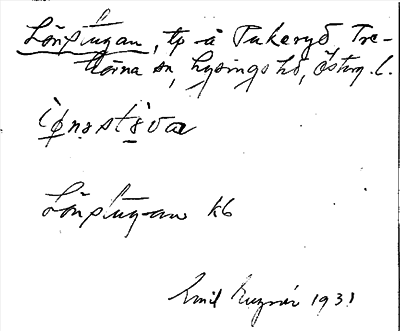 Lönstugan, tp å Tukeryd Tre-
hörna sn, Lysings hd, Österg. l.
Lönstugan kb
Emil 1931